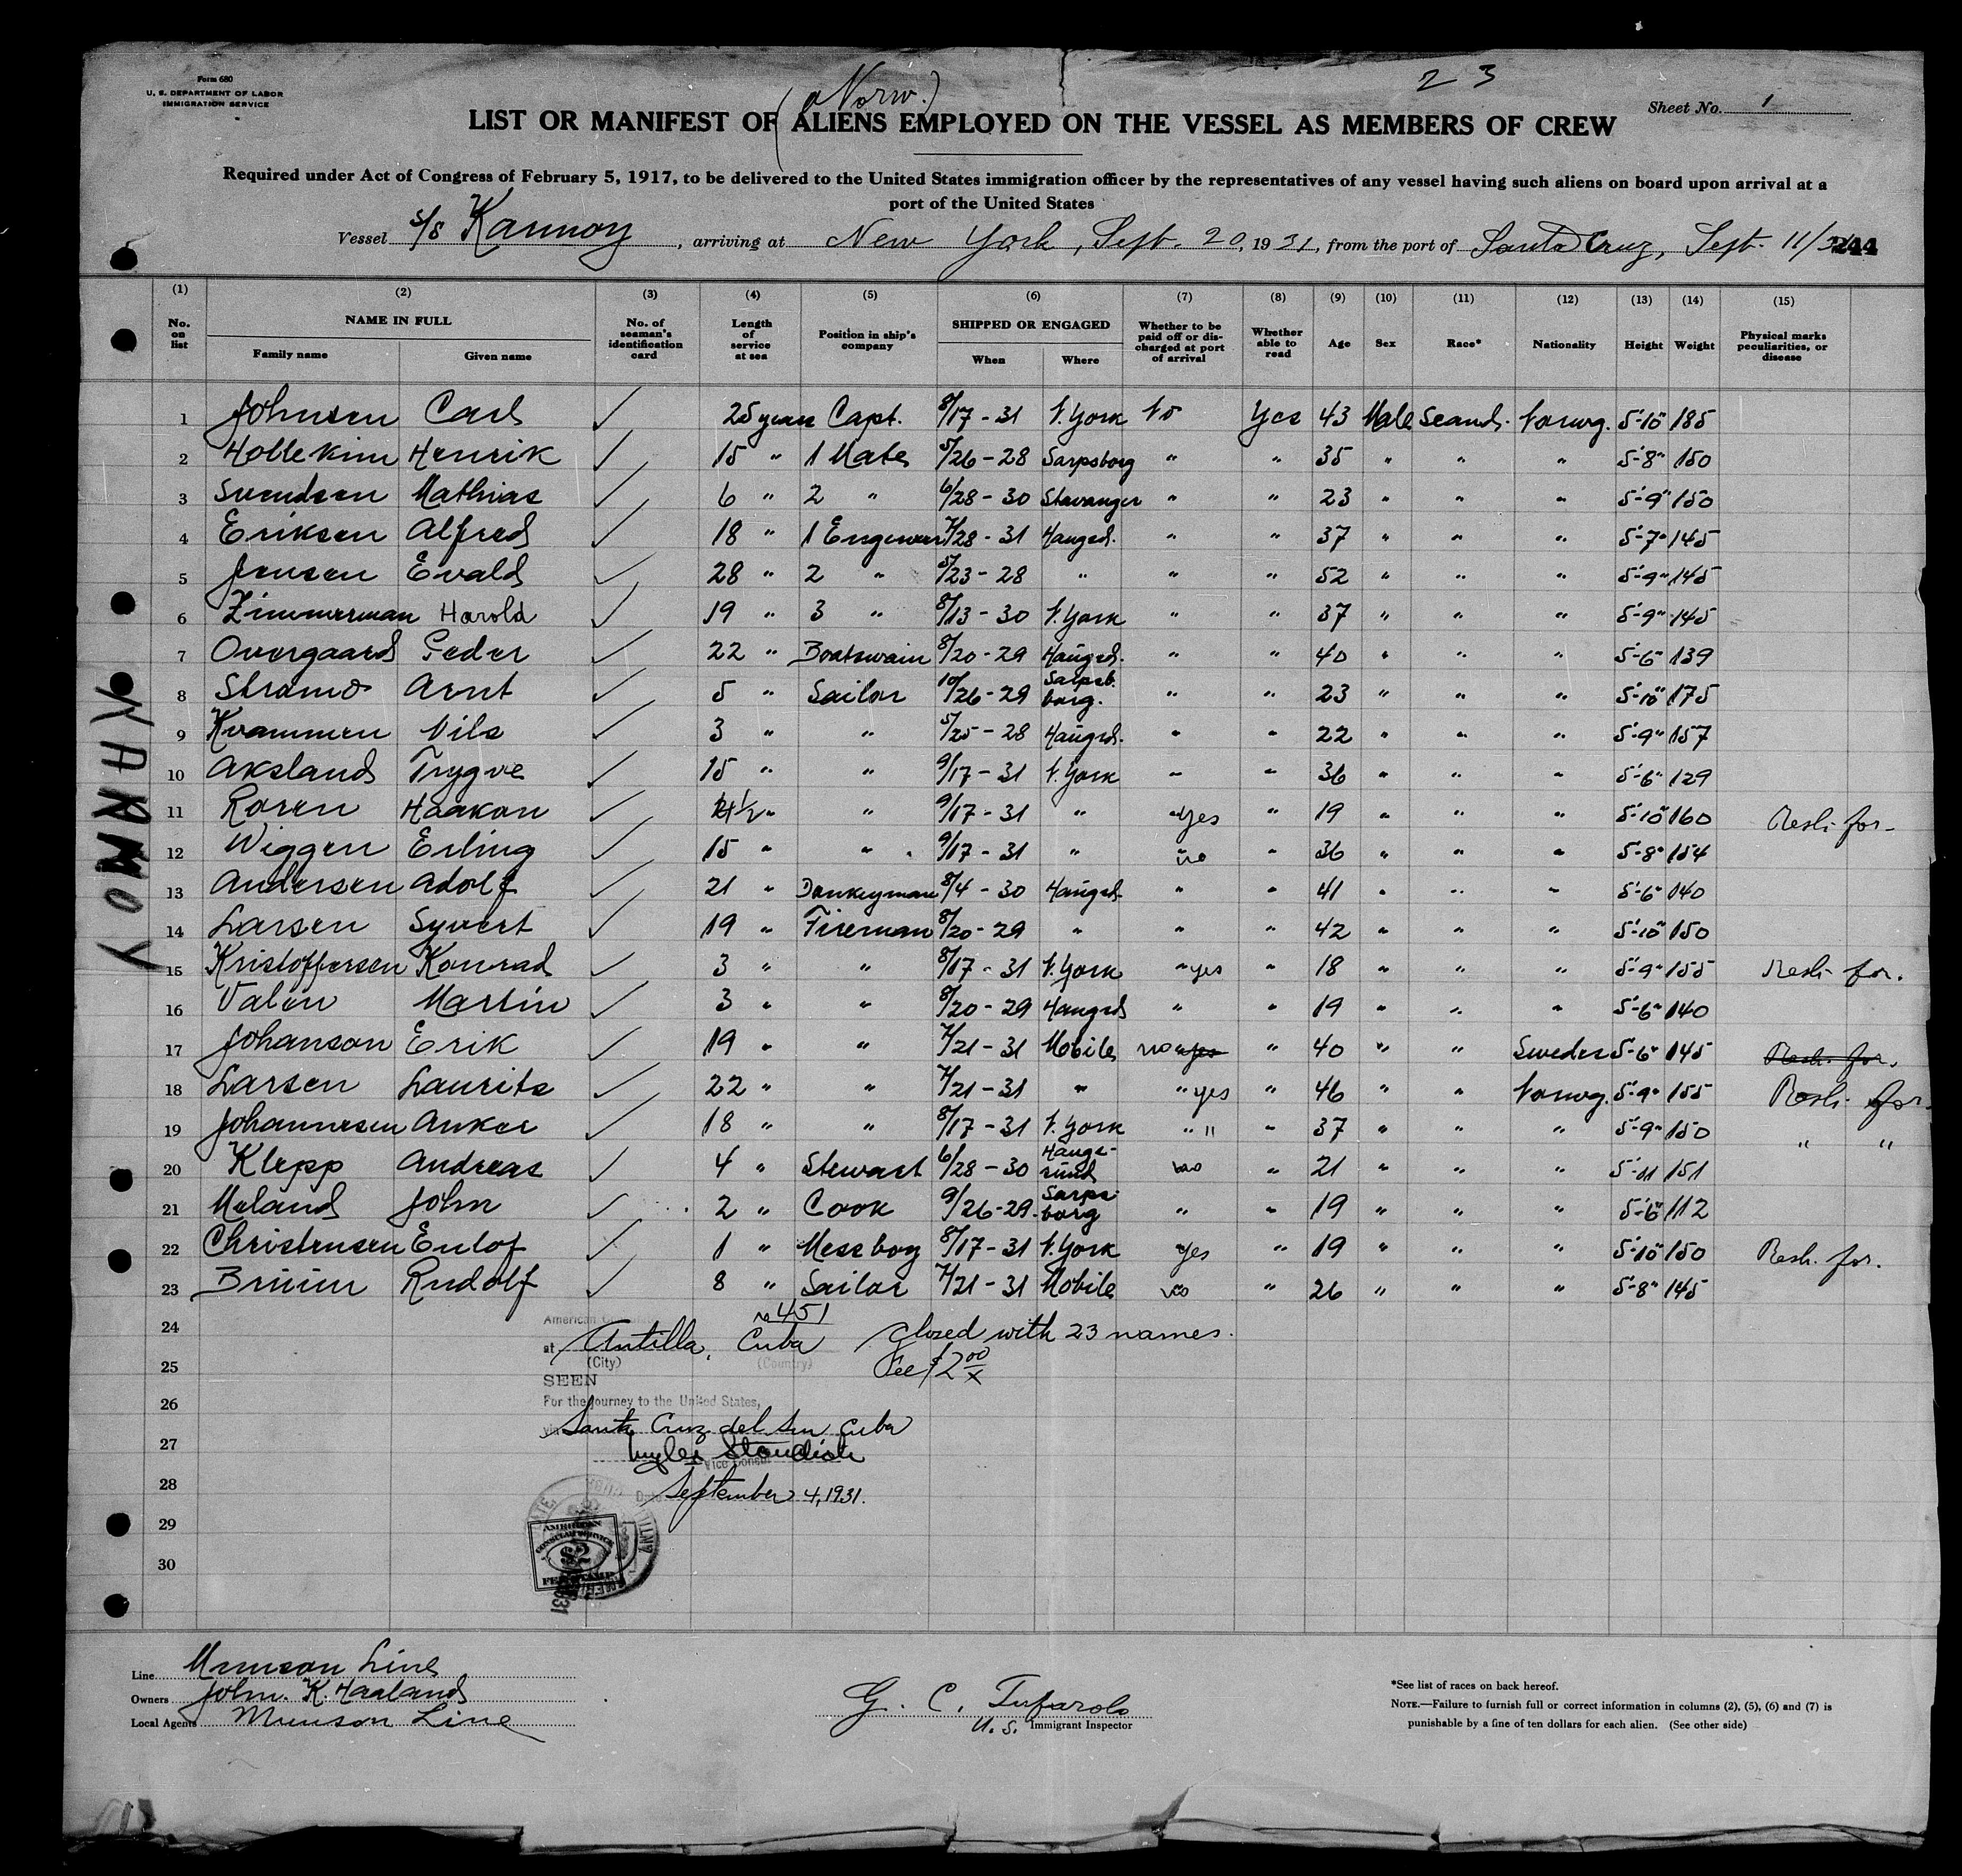 Form 680
U. S. DEPARTMENT OF LABOR
IMMIGRATION SERVICE
(Norw.)
23
Sheet No. 1
LIST OR MANIFEST OF ALIENS EMPLOYED ON THE VESSEL AS MEMBERS OF CREW
Required under Act of Congress of February 5, 1917, to be delivered to the United States immigration officer by the representatives of any vessel having such aliens on board upon arrival at a
port of the United States
Vessel S/S Karmoy, arriving at New York, Sept. 20, 1931, from the port of Santa Cruz, Sept. 11/31
244
(1) (2) (3) (4) (5) (6) (7) (8) (9) (10) (11) (12) (13) (14) (15)
No. on list NAME IN FULL Family name Given name No. of seaman's identification card Length of service at sea Position in ship's company SHIPPED OR ENGAGED When Where Whether to be paid off or discharged at port of arrival Whether able to read Age Sex Race* Nationality Height Weight Physical marks peculiarities, or disease
1 Johnsen Carl ✓ 25 years Capt. 8/17-31 N. York No Yes 43 Male Scand. Norwg. 5'-10" 185
2 Hollekim Henrik ✓ 15 " 1 Mate 5/26-28 Sarpsborg " " 35 " " " 5'-8" 150
3 Svendsen Mathias ✓ 6 " 2 " 6/28-30 Stavanger " " 23 " " " 5'-9" 150
4 Eriksen Alfred ✓ 18 " 1 Engineer 7/28-31 Haugsd. " " 37 " " " 5'-7" 145
5 Jensen Evald ✓ 28 " 2 " 5/23-28 " " " 52 " " " 5'-9" 145
6 Zimmerman Harold ✓ 19 " 3 " 8/13-30 N. York " " 37 " " " 5'-9" 145
7 Overgaard Peder ✓ 22 " Boatswain 8/20-29 Haugsd. " " 40 " " " 5'-6" 139
8 Stramo Arnt ✓ 5 " Sailor 10/26-29 Sarpsborg. " " 23 " " " 5'-10" 175
9 Kvammen Nils ✓ 3 " " 5/25-28 Haugsd. " " 22 " " " 5'-9" 157
10 Aksland Trygve ✓ 15 " " 9/17-31 N. York " " 36 " " " 5'-6" 129
11 Roren Haakon ✓ 4½ " " 9/17-31 " yes " 19 " " " 5'-10" 160 Resh. for.
12 Wiggen Erling ✓ 15 " " 9/17-31 " no " 36 " " " 5'-8" 154
13 Andersen Adolf ✓ 21 " Donkeyman 8/4-30 Haugsd. " " 41 " " " 5'-6" 140
14 Larsen Syvert ✓ 19 " Fireman 8/20-29 " " " 42 " " " 5'-10" 150
15 Kristoffersen Konrad ✓ 3 " " 8/17-31 N. York " yes " 18 " " " 5'-9" 155 Resh. for.
16 Valen Martin ✓ 3 " " 8/20-29 Haugsd " " 19 " " " 5'-6" 140
17 Johanson Erik ✓ 19 " " 7/21-31 Mobile no yes " 40 " " Sweden 5'-6" 145 Resh. for.
18 Larsen Laurits ✓ 22 " " 7/21-31 " " yes " 46 " " Norwg. 5'-9" 155 Resh. for.
19 Johannesen Anker ✓ 18 " " 8/17-31 N. York " " " 37 " " " 5'-9" 150 " "
20 Klepp Andreas ✓ 4 " Stewart 6/28-30 Haugesund no " 21 " " " 5'-11 151
21 Meland John ✓ 2 " Cook 9/26-29 Sarpsborg " " 19 " " " 5'-6" 112
22 Christensen Enlof ✓ 1 " Messboy 8/17-31 N. York yes " 19 " " " 5'-10" 150 Resh. for.
23 Bruun Rudolf ✓ 8 " Sailor 7/21-31 Mobile no " 26 " " " 5'-8" 145
24
25
26
27
28
29
30
KARMOY
No 451
American
at Antilla, Cuba
(City) (Country)
Closed with 23 names.
Fee $2 00/x
SEEN
For the journey to the United States,
via Santa Cruz del Sur Cuba
Myles Standish
Vice Consul
Date September 4, 1931.
AMERICAN
CONSULAR SERVICE
$2
FEE STAMP
Line Munson Line
Owners John. K. Haaland
Local Agents Munson Line
G. C. Tufarolo
U. S. Immigrant Inspector
*See list of races on back hereof.
NOTE.—Failure to furnish full or correct information in columns (2), (5), (6) and (7) is
punishable by a fine of ten dollars for each alien. (See other side)